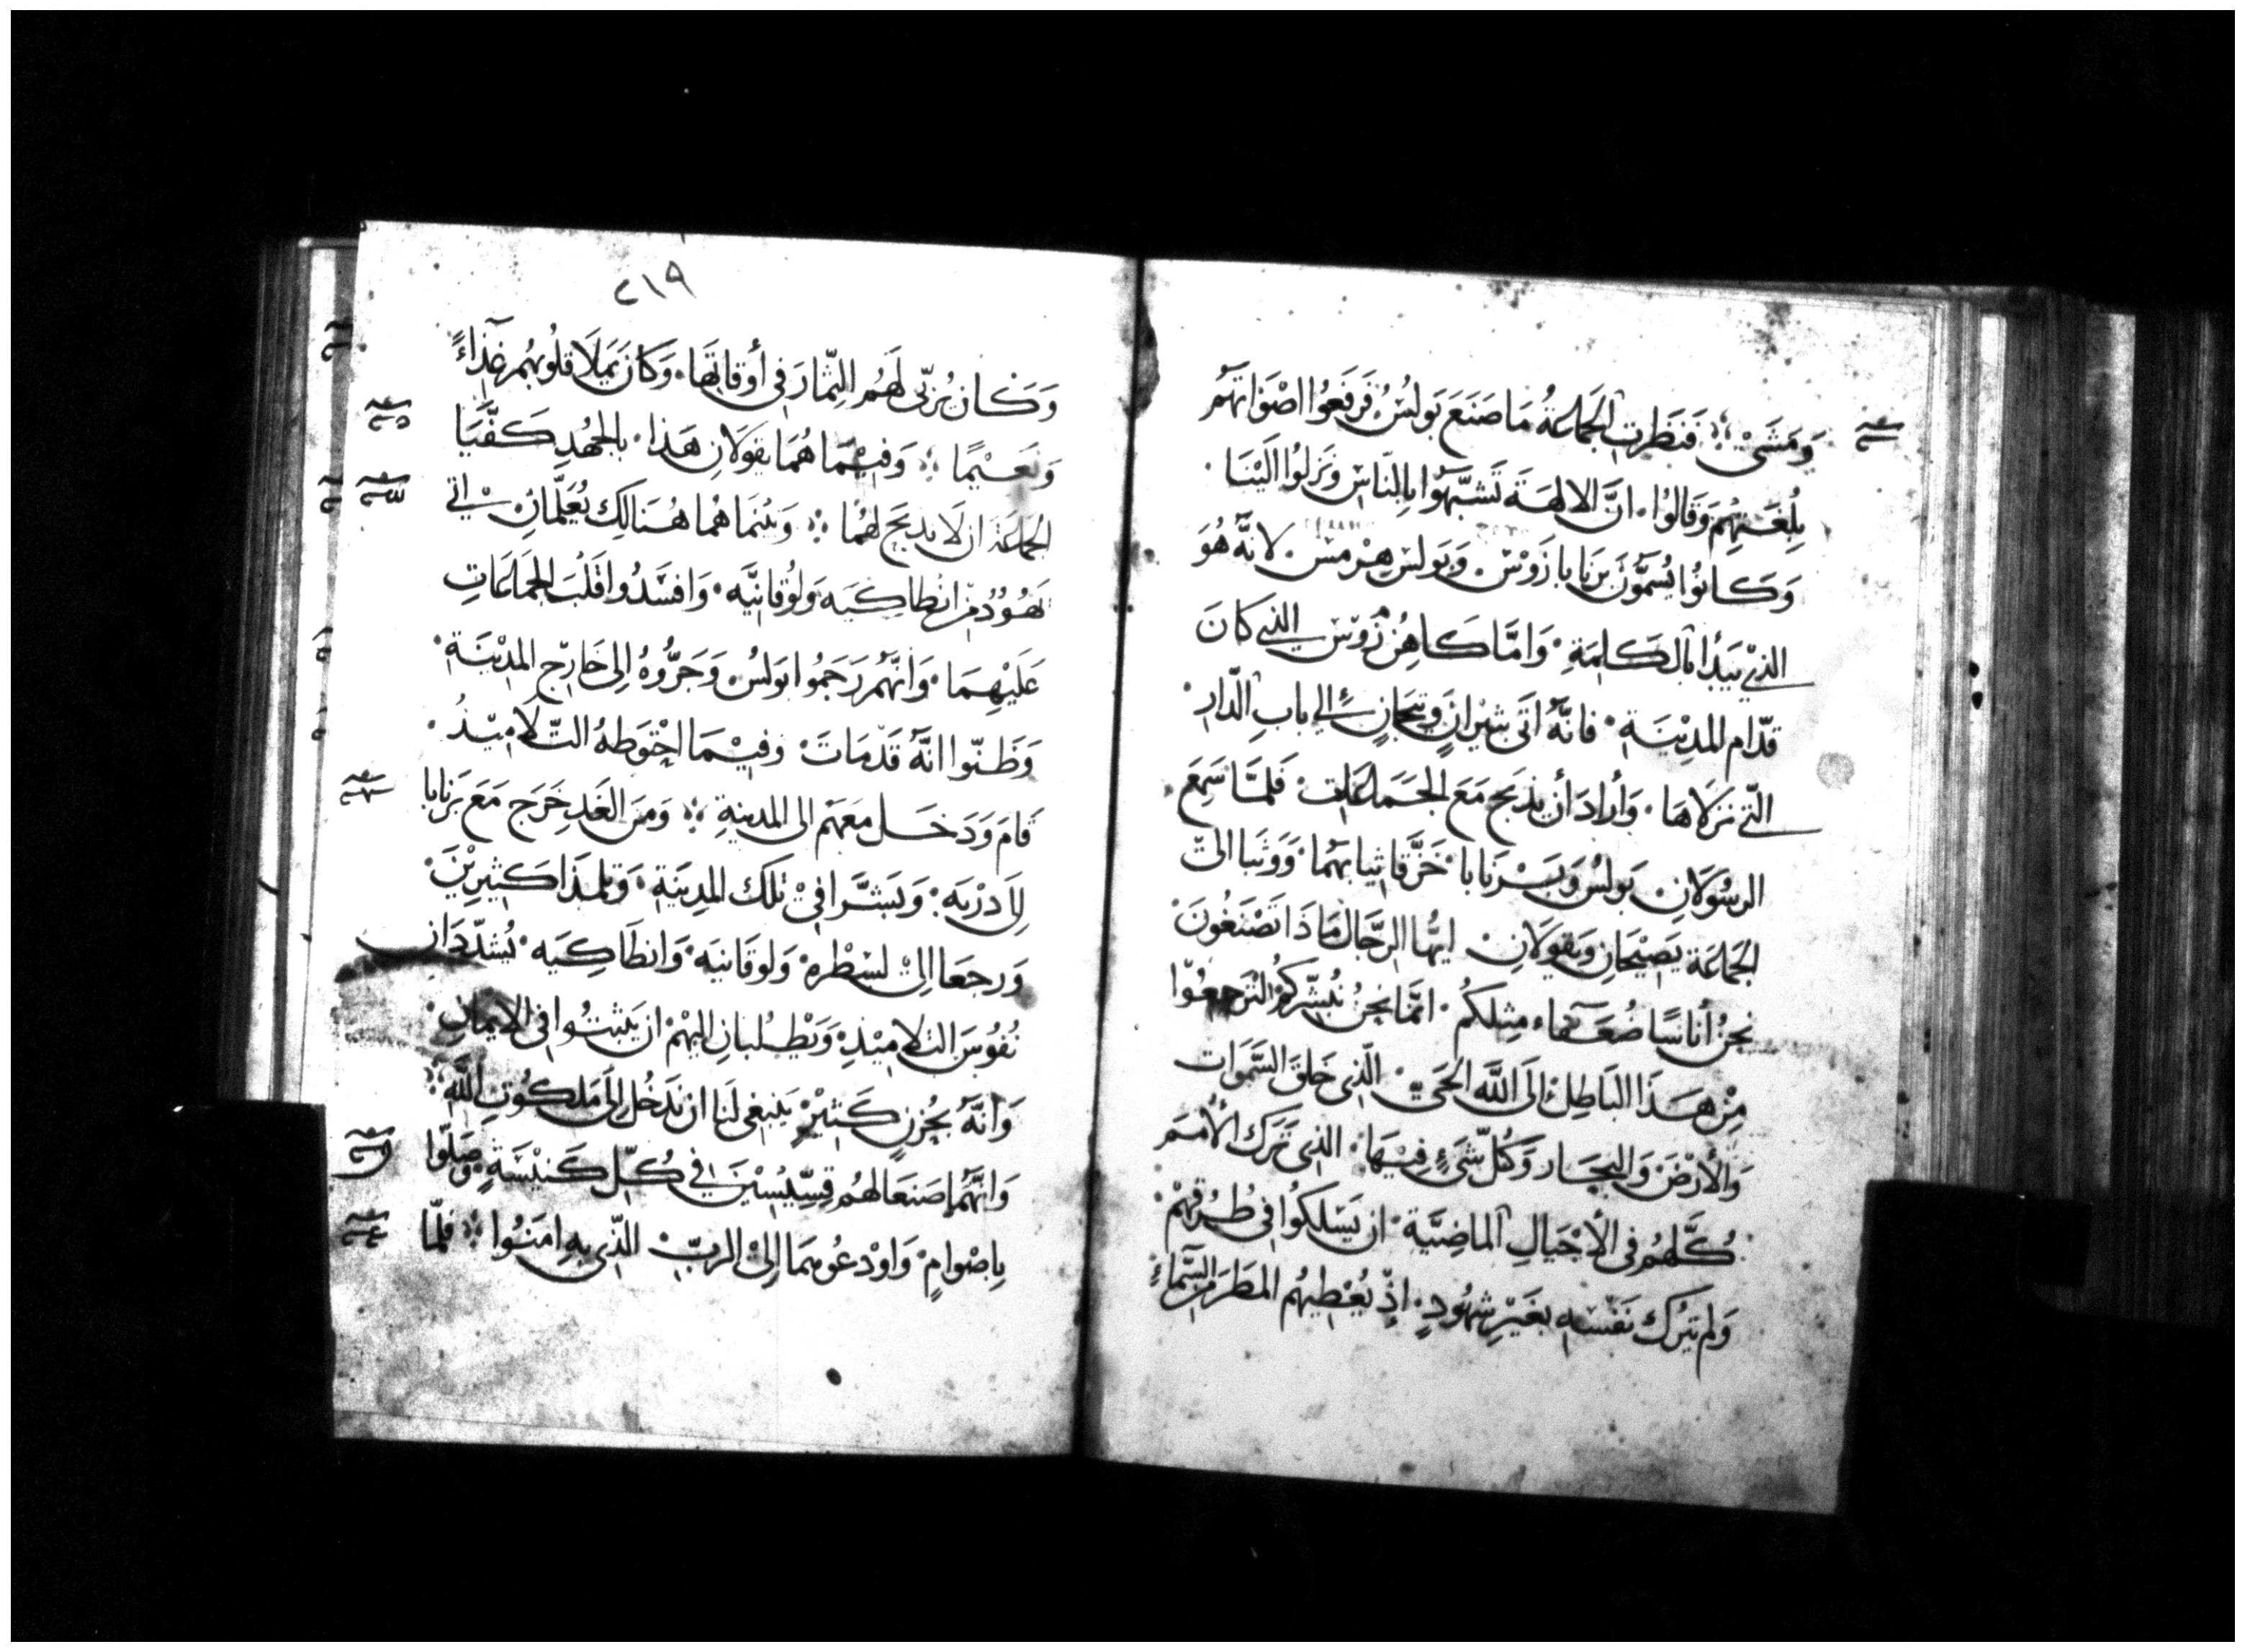 وَمَشَى ؛ فَنَظَرتِ الجَمَاعَةُ مَا صَنَعَ بَولسُ فَرَفَعُوا اصْوَاتَهُم
بِلُغَتِهِمَ وَقَالوُا ۰ انَّ الالهَةَ تَشَبَّهُوا بِالنّاسِ وَنَزلوُا الَيْنَا ۰
وَكَانوُا يُسَمُّونَ بَرنَابا زَوْسَ ۰ وَبَولسَ هِرْمسَ ۰ لانَّهُ هُوَ
الذيْ يَبَدُأ بَالكَلِمَةِ ۰ وَامَّا كَاهِنُ زَوْسَ الذي كانَ
قدّام المدِيْنَةِ ۰ فانَّهُ اتَى بثيْرانٍ وَتيجَانٍ الي بابِ الدّارِ ۰
التي نزَلاهَا ۰ وَأرادَ أن يذبَحَ مَعَ الجَمَاعَاتِ ۰ فَلمَّا سَمِعَ
الرسُولانِ بَولسُ وَبَرنَابا ۰ خَرَّقا ثيابَهُما ۰ وَوَثَبا الىَ
الجَمَاعَة يَصِيْحَانِ وَيقولانِ ۰ ايهُّا الرجَّال مَا ذَا تَصْنَعُونَ ۰
نحنُ أناسًا ضُعَفاء مِثلكُم ۰ انمَّا نحنُ نُبَشّركُم لتَرجِعُوا
مِنْ هَذَا البَاطِلِ ۰ الىَ اللَّه الحَيّ ۰ الّذى خَلقَ السَّمَوَات
وَالأرْضَ وَالبحَار وَكُلّ شَىءٍ فيْهَا ۰ الذى تَرَك الأمَم
كُلَّهُم في الأجْيَالِ الماضِيَّةِ ۰ ان يَسْلكوُا في طُرُقِهمْ ۰
وَلم يترُك نَفْسَه بغَيْرِ شهُودٍ ۰ اذْ يُعْطِيْهُم المَطَرَ مِن السَّماءِ
٢١٩
وَكَان يُرَبّى لَهَمُ الثّمَارَ في أوقاتهَا ۰ وَكَانَ يَملا قلوُبهُم غذَاءً
وَنَعيْمًا ؛ وَفيْمَا هُمَا يقولانِ هَذا ۰ بالجهُدِ كَفَّيَا
الجمَاعَة ان لا يذبَحَ لهُمَا ؛ وَبَينَمَا هُما هُنَالِك يُعَلّمَانِ اتى
يَهُوُدُ مِن انطاكِيَه وَلوُقانيَّه ۰ وَافسَدُوا قلَبَ الجَمَاعَاتِ
عَليْهِمَا ۰ وَانَّهُم رَجَمُوا بَولسُ ۰ وَجَرُّوُهُ إلى خَارِج المدِيْنَةِ ۰
وَظَنّوا انَّهُ قدْ مَاتَ ۰ وَفيْمَا احْتَوَطهُ التّلامِيْذُ ۰
قامَ وَدَخَل مَعَهَم الى المدينةِ ؛ وَمِنَ الغَدِ خَرَج مَعَ بَرنَابا
إلَى دَرْبَه ۰ وَبَشَّرَا فيْ تلك المدِينَةِ ۰ وَتلمَذا كثيرِيْنَ ۰
وَرجعَا الىْ لسْطرَه ۰ وَلوقانيَه ۰ وَانطَاكِيَه ۰ يُشدّدَانِ
نُفوُسَ التلامِيْذِ ۰ وَيَطلُبانِ اليْهَمْ ۰ ان يَثبتُوا في الايمَانِ ۰
وَانَّهُ بحُزنٍ كَثيْرْ يَنبَغى لنَا ان نَدخُل الَى مَلكوُتِ اللَّهِ ؛
وَانَّهُمَا صَنَعَا لهُم قِسّيْسِيْنَ في كُلّ كَنيْسَةٍ ۰ وَصَلّوا
بِاصْوامٍ ۰ وَاوْدعُوهمَا إلىْ الربّ ۰ الذّى بهِ امَنُوا ؛ فلمّا